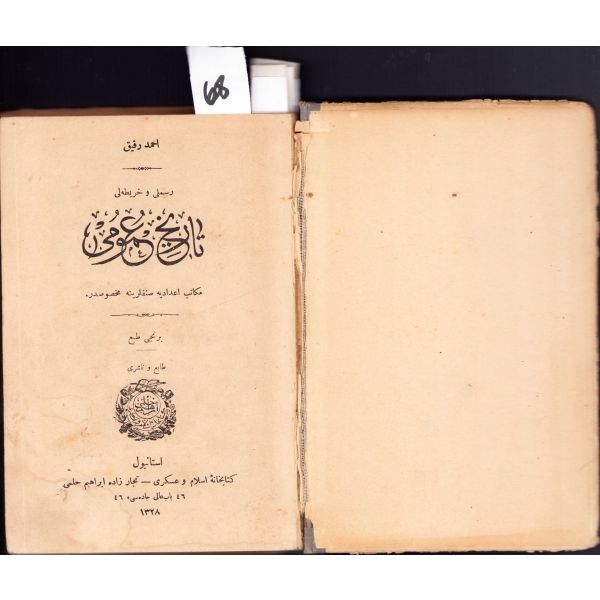 68
احمد رفيق
رسملی و خريطه‌لی
تاريخ عمومی
مكاتب اعداديه صنفلرينه مخصوصدر.
برنجی طبع
طابع و ناشری
استانبول
كتابخانهٔ اسلام و عسكری — تجار زاده ابراهيم حلمی
٤٦ باب عالی جاده‌سی ٤٦
١٣٢٨